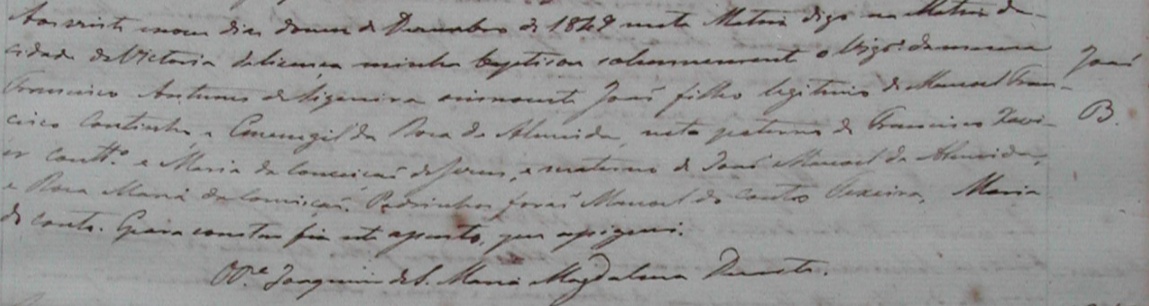 Aos vinte nove dias do mez de Dezembro de 1848 nesta Matriz digo na Matriz da
cidade da Victoria de licença minha baptisou solennemente o Vigº da mesma
João
Francisco Antunes de Siqueira innocente João filho legitimo de Manoel Fran-
cisco Coutinho e Rosa de Almeida, neto paterno de Francisco Xavi-
B.
er Couttº e Maria da Conceicaõ de Jesus, e materno de João Manoel de Almeida,
e Rosa Maria da Conceicaõ. Padrinhos foraõ Manoel do Couto Teixeira, Maria
do Couto. E para constar fiz este assento, que assignei.
O Pe Joaquim de S. Maria Magdalena Duarte.